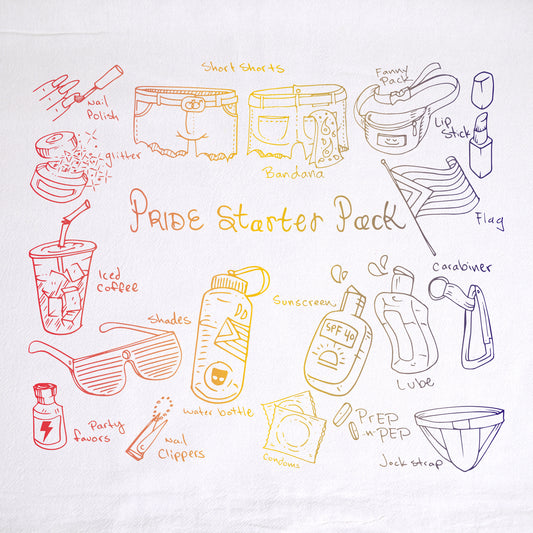 Short Shorts
Nail
Polish
Fanny
Pack
Lip
Stick
glitter
Bandana
PRIDE Starter Pack
Flag
Iced
coffee
Carabiner
Shades
Sunscreen
SPF 40
Lube
water bottle
Party
favors
Nail
Clippers
Condoms
PrEP
-n-PEP
Jock strap